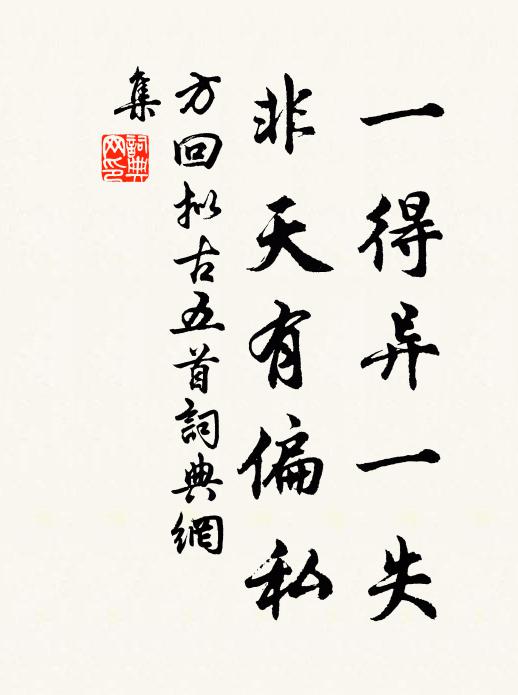 一得异一失
非天有偏私
方回拟古五首詞典網
集
詞典
网印